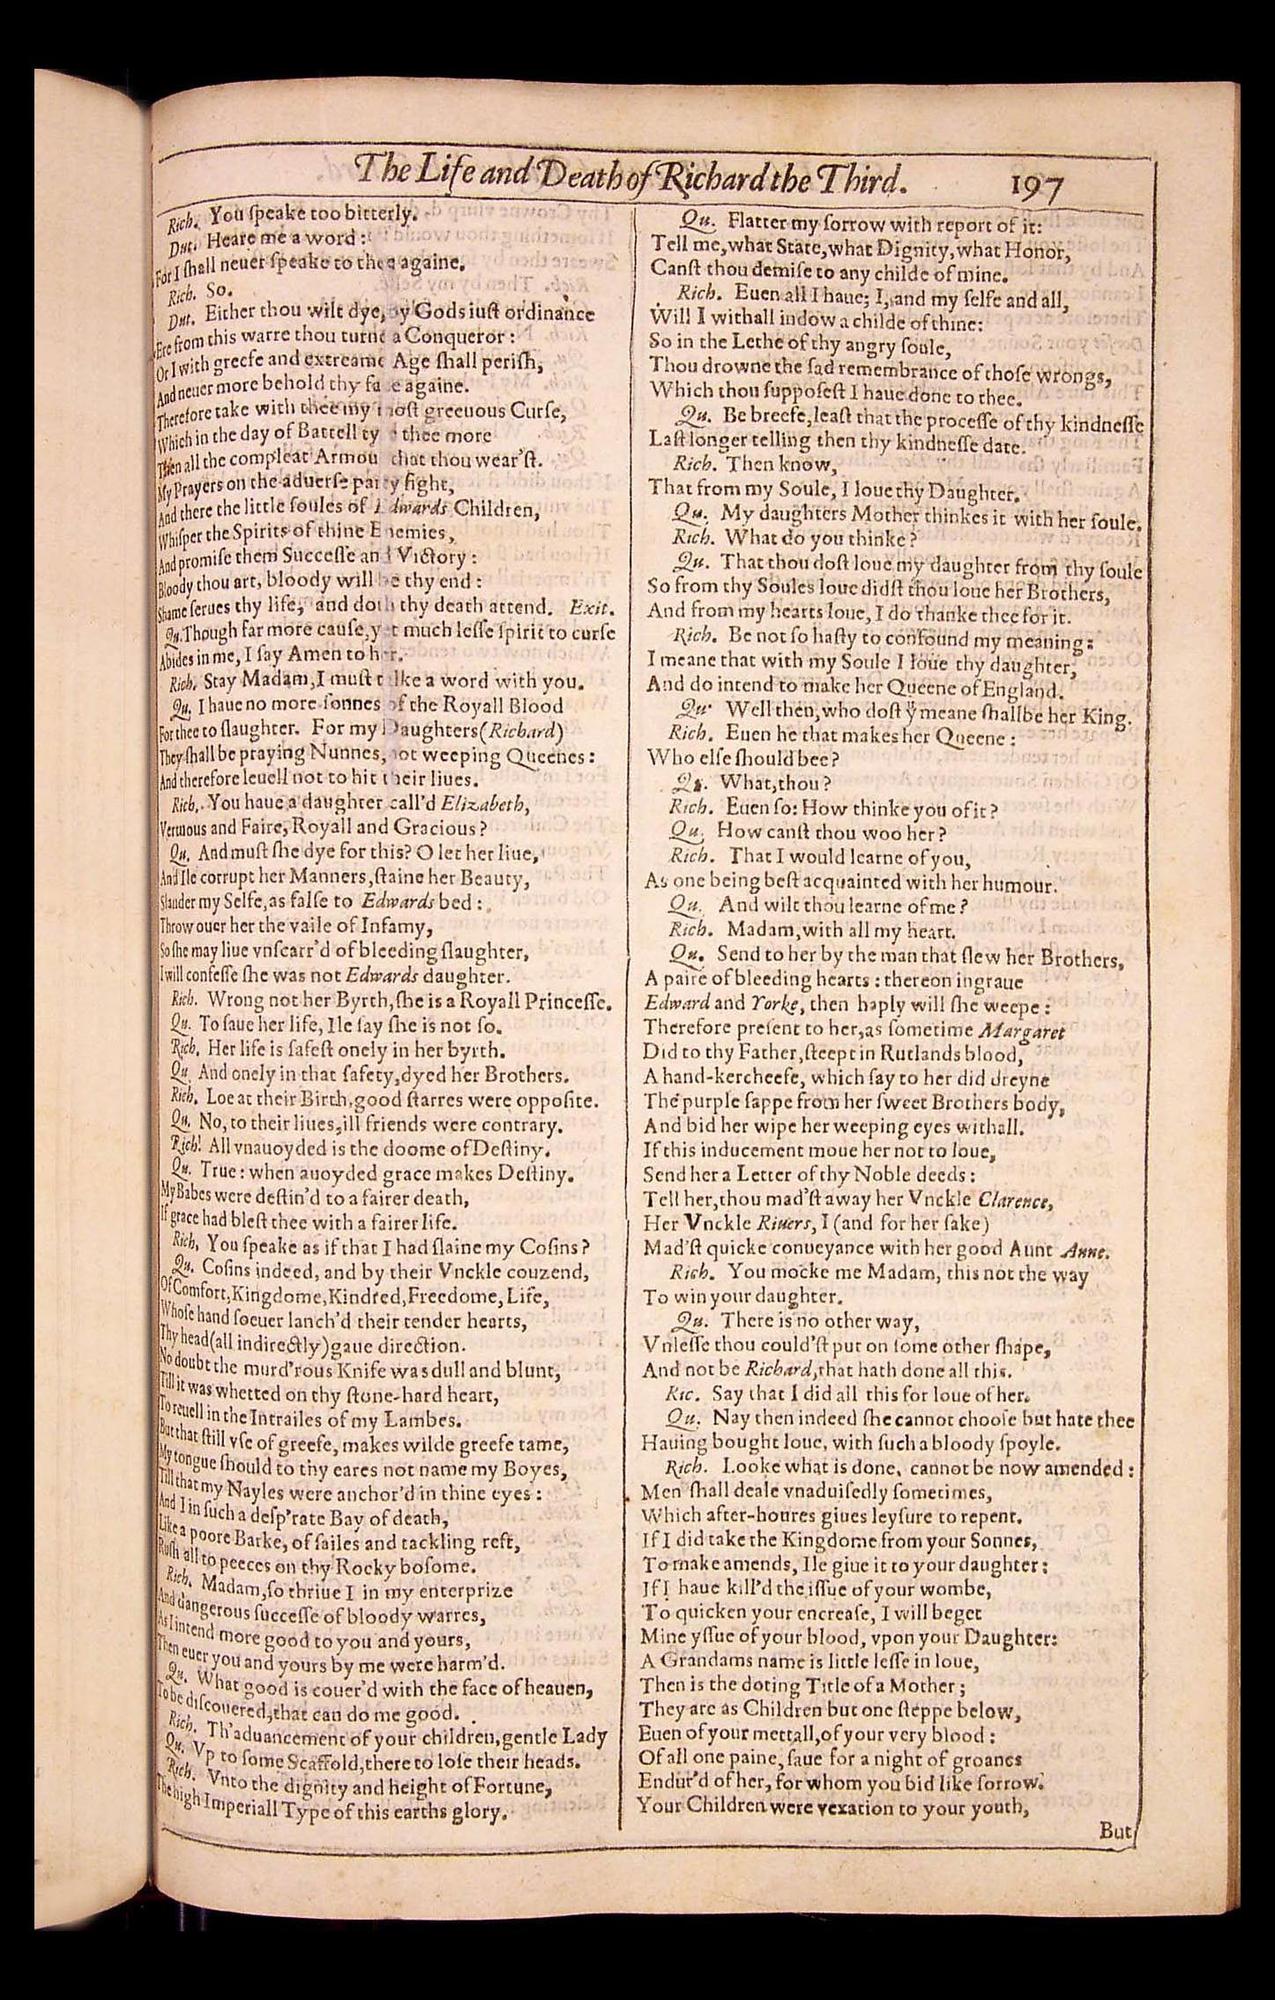 The Life and Death of Richard the Third. 197
Rich. You ſpeake too bitterly.
Dut. Heare me a word:
For I ſhall neuer ſpeake to thee againe.
Rich. So.
Dut. Either thou wilt dye, by Gods iuſt ordinance
Ere from this warre thou turne a Conqueror:
Or I with greefe and extreame Age ſhall periſh,
And neuer more behold thy face againe.
Therefore take with thee my moſt greeuous Curſe,
Which in the day of Battell ty thee more
Then all the compleat Armou that thou wear'ſt.
My Prayers on the aduerſe party fight,
And there the little ſoules of Edwards Children,
Whiſper the Spirits of thine Enemies,
And promiſe them Succeſſe and Victory:
Bloody thou art, bloody will be thy end:
Shame ſerues thy life, and doth thy death attend. Exit.
Qu. Though far more cauſe, yet much leſſe ſpirit to curſe
Abides in me, I ſay Amen to her.
Rich. Stay Madam, I muſt talke a word with you.
Qu. I haue no more ſonnes of the Royall Blood
For thee to ſlaughter. For my Daughters (Richard)
They ſhall be praying Nunnes, not weeping Queenes:
And therefore leuell not to hit their liues.
Rich. You haue a daughter call'd Elizabeth,
Vertuous and Faire, Royall and Gracious?
Qu. And muſt ſhe dye for this? O let her liue,
And Ile corrupt her Manners, ſtaine her Beauty,
Slander my Selfe, as falſe to Edwards bed:
Throw ouer her the vaile of Infamy,
So ſhe may liue vnſcarr'd of bleeding ſlaughter,
I will confeſſe ſhe was not Edwards daughter.
Rich. Wrong not her Byrth, ſhe is a Royall Princeſſe.
Qu. To ſaue her life, Ile ſay ſhe is not ſo.
Rich. Her life is ſafeſt onely in her byrth.
Qu. And onely in that ſafety, dyed her Brothers.
Rich. Loe at their Birth, good ſtarres were oppoſite.
Qu. No, to their liues, ill friends were contrary.
Rich. All vnauoyded is the doome of Deſtiny.
Qu. True: when auoyded grace makes Deſtiny.
My Babes were deſtin'd to a fairer death,
If grace had bleſt thee with a fairer life.
Rich. You ſpeake as if that I had ſlaine my Coſins?
Qu. Coſins indeed, and by their Vnckle couzend,
Of Comfort, Kingdome, Kindred, Freedome, Life,
Whoſe hand ſoeuer lanch'd their tender hearts,
Thy head (all indirectly) gaue direction.
No doubt the murd'rous Knife was dull and blunt,
Till it was whetted on thy ſtone-hard heart,
To reuell in the Intrailes of my Lambes.
But that ſtill vſe of greefe, makes wilde greefe tame,
My tongue ſhould to thy eares not name my Boyes,
Till that my Nayles were anchor'd in thine eyes:
And I in ſuch a deſp'rate Bay of death,
Like a poore Barke, of ſailes and tackling reft,
Ruſh all to peeces on thy Rocky boſome.
Rich. Madam, ſo thriue I in my enterprize
And dangerous ſucceſſe of bloody warres,
As I intend more good to you and yours,
Then euer you and yours by me were harm'd.
Qu. What good is couer'd with the face of heauen,
To be diſcouered, that can do me good.
Rich. Th'aduancement of your children, gentle Lady
Qu. Vp to ſome Scaffold, there to loſe their heads.
Rich. Vnto the dignity and height of Fortune,
The high Imperiall Type of this earths glory.
Qu. Flatter my ſorrow with report of it:
Tell me, what State, what Dignity, what Honor,
Canſt thou demiſe to any childe of mine.
Rich. Euen all I haue; I, and my ſelfe and all,
Will I withall indow a childe of thine:
So in the Lethe of thy angry ſoule,
Thou drowne the ſad remembrance of thoſe wrongs,
Which thou ſuppoſeſt I haue done to thee.
Qu. Be breefe, leaſt that the proceſſe of thy kindneſſe
Laſt longer telling then thy kindneſſe date.
Rich. Then know,
That from my Soule, I loue thy Daughter.
Qu. My daughters Mother thinkes it with her ſoule.
Rich. What do you thinke?
Qu. That thou doſt loue my daughter from thy ſoule
So from thy Soules loue didſt thou loue her Brothers,
And from my hearts loue, I do thanke thee for it.
Rich. Be not ſo haſty to confound my meaning:
I meane that with my Soule I loue thy daughter,
And do intend to make her Queene of England.
Qu. Well then, who doſt yͧ meane ſhall be her King.
Rich. Euen he that makes her Queene:
Who elſe ſhould bee?
Qu. What, thou?
Rich. Euen ſo: How thinke you of it?
Qu. How canſt thou woo her?
Rich. That I would learne of you,
As one being beſt acquainted with her humour.
Qu. And wilt thou learne of me?
Rich. Madam, with all my heart.
Qu. Send to her by the man that ſlew her Brothers,
A paire of bleeding hearts: thereon ingraue
Edward and Yorke, then haply will ſhe weepe:
Therefore preſent to her, as ſometime Margaret
Did to thy Father, ſteept in Rutlands blood,
A hand-kercheefe, which ſay to her did dreyne
The purple ſappe from her ſweet Brothers body,
And bid her wipe her weeping eyes withall.
If this inducement moue her not to loue,
Send her a Letter of thy Noble deeds:
Tell her, thou mad'ſt away her Vnckle Clarence,
Her Vnckle Riuers, I (and for her ſake)
Mad'ſt quicke conueyance with her good Aunt Anne.
Rich. You mocke me Madam, this not the way
To win your daughter.
Qu. There is no other way,
Vnleſſe thou could'ſt put on ſome other ſhape,
And not be Richard, that hath done all this.
Ric. Say that I did all this for loue of her.
Qu. Nay then indeed ſhe cannot chooſe but hate thee
Hauing bought loue, with ſuch a bloody ſpoyle.
Rich. Looke what is done, cannot be now amended:
Men ſhall deale vnaduiſedly ſometimes,
Which after-houres giues leyſure to repent.
If I did take the Kingdome from your Sonnes,
To make amends, Ile giue it to your daughter:
If I haue kill'd the iſſue of your wombe,
To quicken your encreaſe, I will beget
Mine yſſue of your blood, vpon your Daughter:
A Grandams name is little leſſe in loue,
Then is the doting Title of a Mother;
They are as Children but one ſteppe below,
Euen of your mettall, of your very blood:
Of all one paine, ſaue for a night of groanes
Endur'd of her, for whom you bid like ſorrow.
Your Children were vexation to your youth,
But